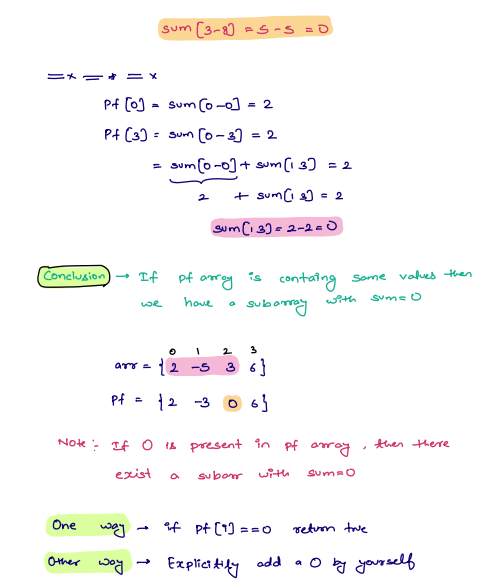 sum [3-8] = 5 - 5 = 0
= x = * = x
Pf [0] = sum [0-0] = 2
Pf [3] = sum [0-3] = 2
= sum [0-0] + sum [1 3] = 2
2 + sum [1 3] = 2
sum [1 3] = 2-2 = 0
Conclusion → If Pf array is containg same values then
we have a subarray with sum=0
0 1 2 3
arr = { 2 -5 3 6}
Pf = {2 -3 0 6}
Note:- If 0 is present in pf array, then there
exist a subarr with sum=0
One way → if Pf [i] == 0 return true
Other way → Explicitify add a 0 by yourself